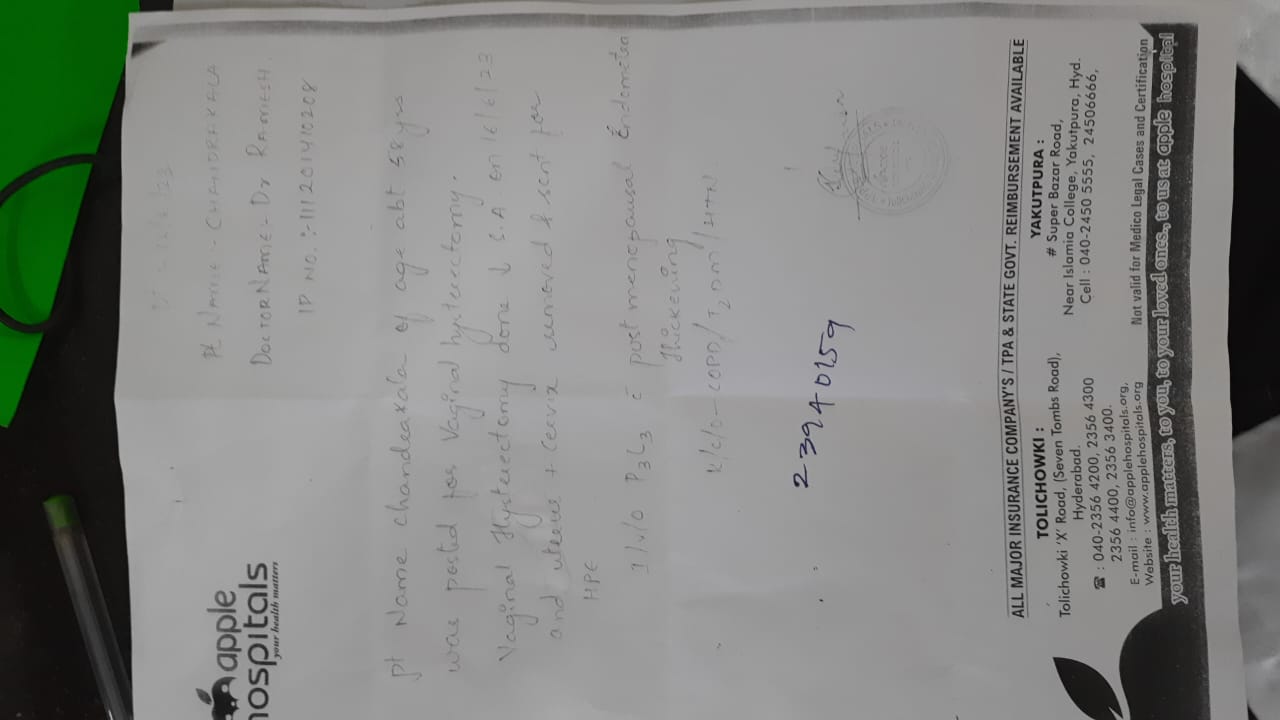 apple
hospitals
your health matters
Pt. NAME - CHANDRAKALA
DOCTOR NAME - Dr RAMESH.
IP NO. :- 111201410208
pt Name chandrakala of age abt 58 yrs
was posted for Vaginal hysterectomy.
Vaginal Hysterectomy done ↓ S.A on 16/6/23
and uterus + cervix removed & sent for
HPE
I/v/o P3L3 c̄ postmenopausal Endometrial
thickening
K/c/o - COPD / T2DM / HTN
23940159
ALL MAJOR INSURANCE COMPANY'S / TPA & STATE GOVT. REIMBURSEMENT AVAILABLE
TOLICHOWKI :
Tolichowki 'X' Road, (Seven Tombs Road),
Hyderabad.
☎ : 040-2356 4200, 2356 4300
2356 4400, 2356 3400.
E-mail : info@applehospitals.org,
Website : www.applehospitals.org
YAKUTPURA :
# Super Bazar Road,
Near Islamia College, Yakutpura, Hyd.
Cell : 040-2450 5555, 24506666,
Not valid for Medico Legal Cases and Certification
your health matters, to you, to your loved ones., to us at apple hospital